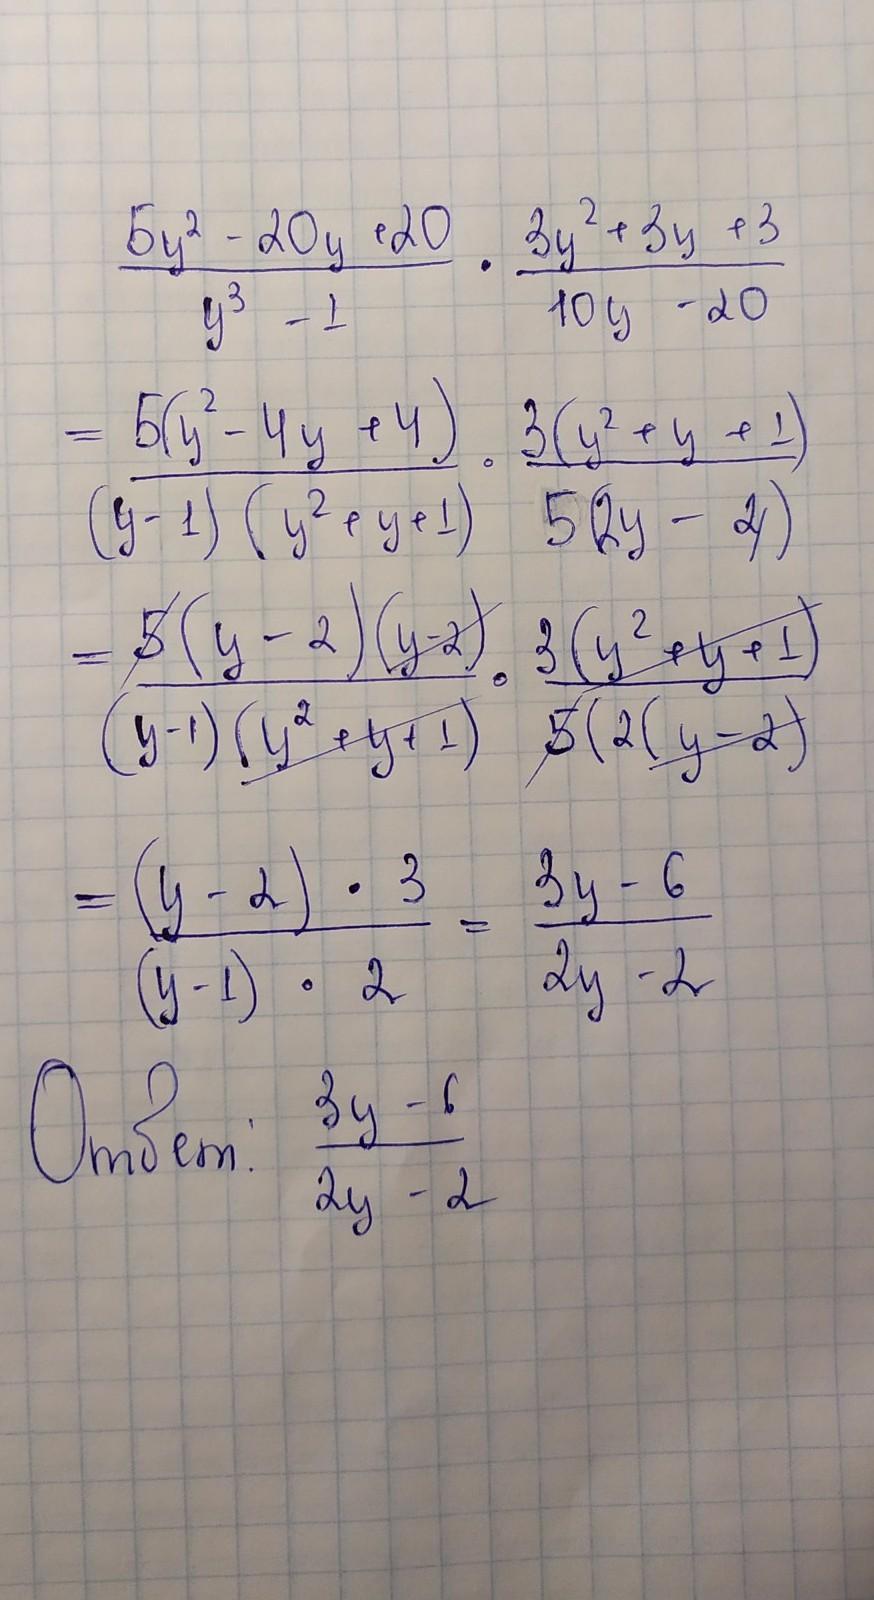 (5y² - 20y + 20)/(y³ - 1) · (3y² + 3y + 3)/(10y - 20)
= 5(y² - 4y + 4)/(y - 1)(y² + y + 1) · 3(y² + y + 1)/5(2y - 4)
= 5(y - 2)(y - 2)/(y - 1)(y² + y + 1) · 3(y² + y + 1)/5(2(y - 2)
= (y - 2) · 3/(y - 1) · 2 = 3y - 6/2y - 2
Ответ: 3y - 6/2y - 2